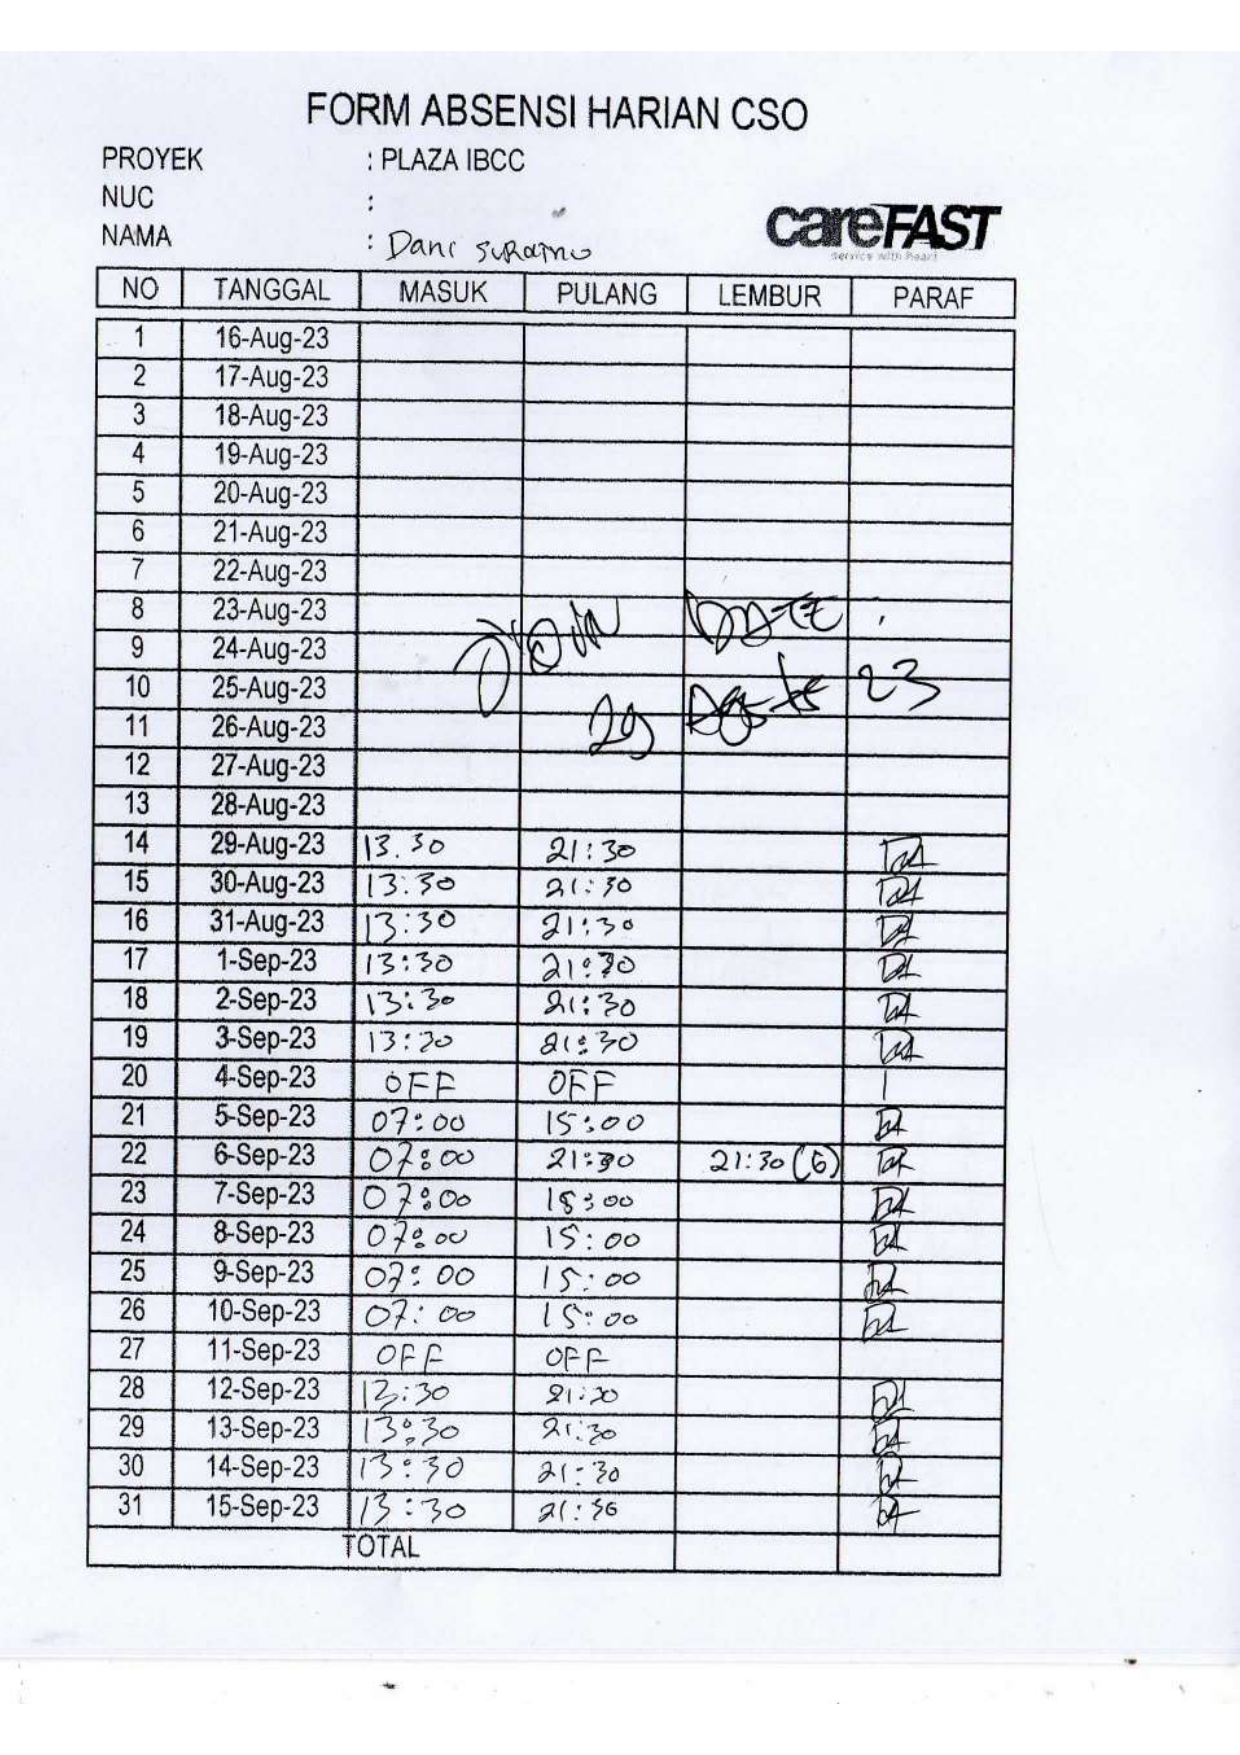 FORM ABSENSI HARIAN CSO
PROYEK : PLAZA IBCC
NUC :
NAMA : Dani
careFAST
service with heart
NO TANGGAL MASUK PULANG LEMBUR PARAF
1 16-Aug-23
2 17-Aug-23
3 18-Aug-23
4 19-Aug-23
5 20-Aug-23
6 21-Aug-23
7 22-Aug-23
8 23-Aug-23
9 24-Aug-23
10 25-Aug-23
11 26-Aug-23
12 27-Aug-23
13 28-Aug-23
Join Date :
29 23
14 29-Aug-23 13.30 21:30
15 30-Aug-23 13:30 21:30
16 31-Aug-23 13:30 21:30
17 1-Sep-23 13:30 21:30
18 2-Sep-23 13:30 21:30
19 3-Sep-23 13:30 21:30
20 4-Sep-23 OFF OFF
21 5-Sep-23 07:00 15:00
22 6-Sep-23 07:00 21:30 21:30 (6)
23 7-Sep-23 07:00 15:00
24 8-Sep-23 07:00 15:00
25 9-Sep-23 07:00 15:00
26 10-Sep-23 07:00 15:00
27 11-Sep-23 OFF OFF
28 12-Sep-23 13:30 21:30
29 13-Sep-23 13:30 21:30
30 14-Sep-23 13:30 21:30
31 15-Sep-23 13:30 21:30
TOTAL